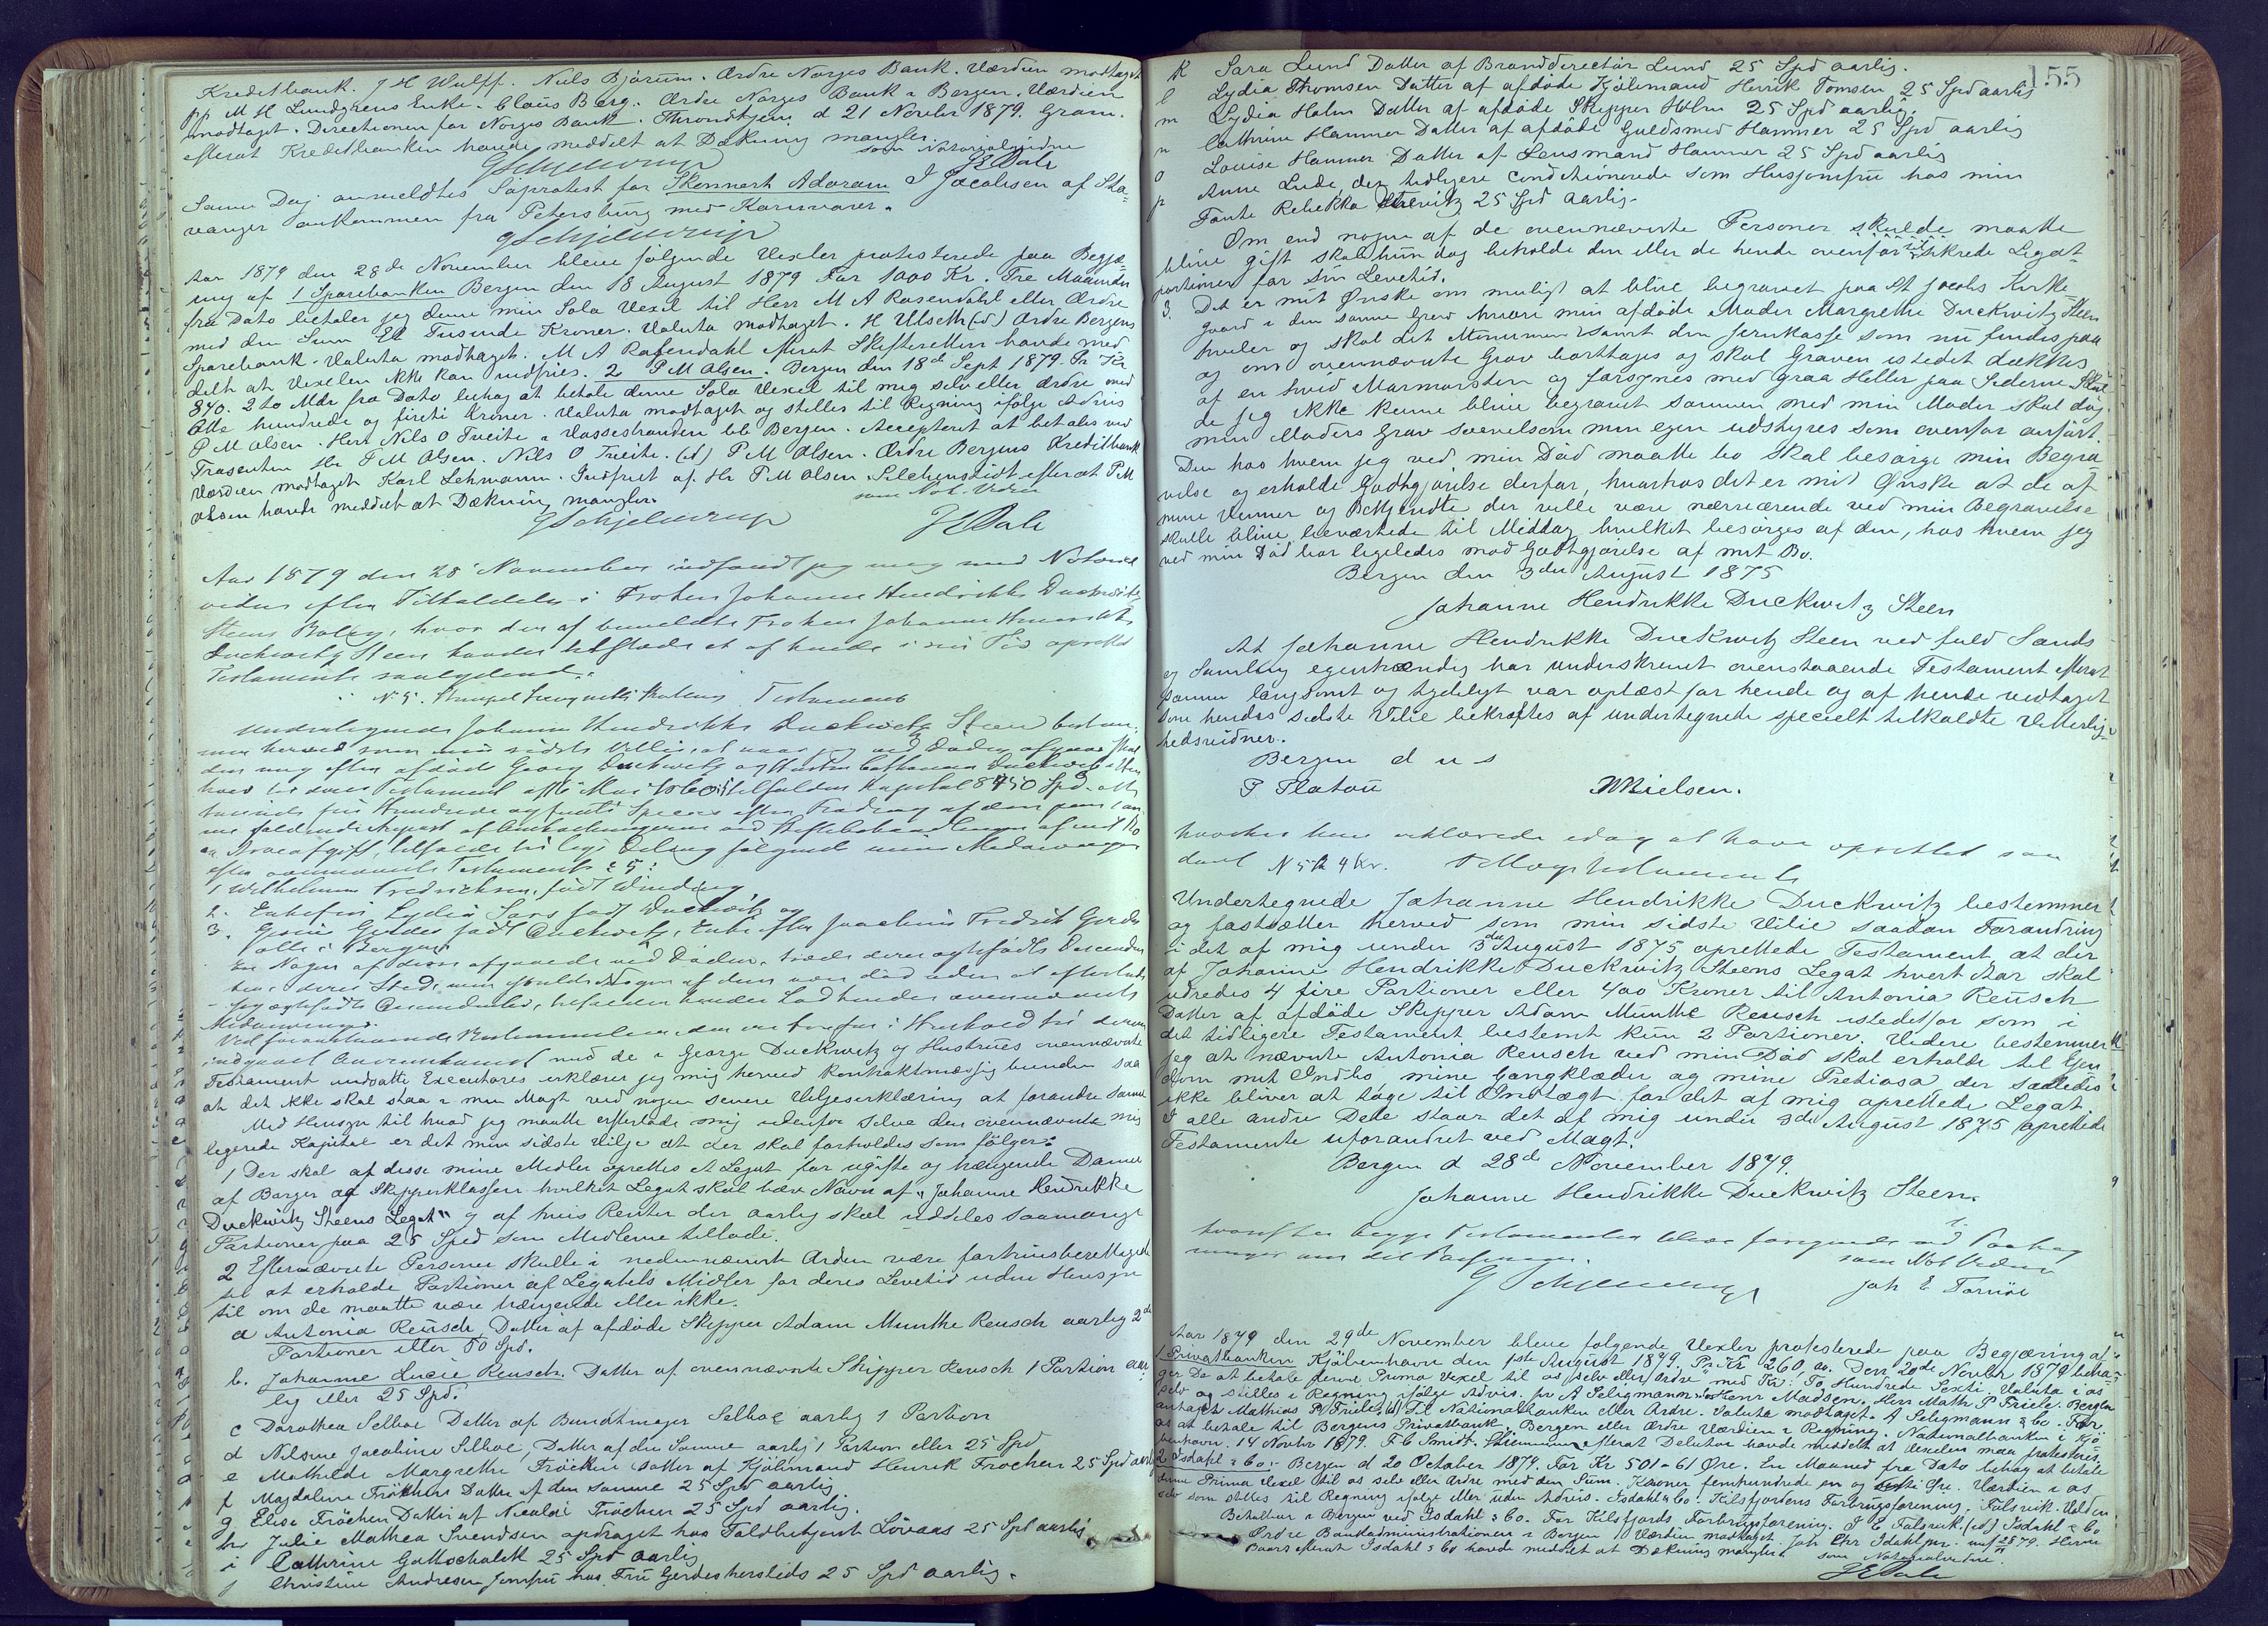 Kreditbank. J H Wulff. Niels Bjørum. Ordre Norges Bank. Værdien modtaget
pp M H Lundgrens Enke. Claus Berg. Ordre Norges Bank i Bergen. Værdien
modtaget. Directionen for Norges Bank. Throndhjem d 21 Novbr 1879. Gram.
efterat Kreditbanken havde meddelt at Dækning mangler.
som Notarialvidne
GSchjelderup JEDale
Samme Dag anmeldtes Søprotest for Skonnert Adoram J Jacobsen af Sta-
vanger ankommen fra Petersburg med Kornvarer.
GSchjelderup
Aar 1879 den 28de November bleve følgende Vexler protesterede paa Begjæ-
ring af 1 Sparebanken Bergen den 18 August 1879 For 1000 Kr. Tre Maaneder
fra Dato betaler jeg denne min Sola Vexel til Herr M A Rosendahl eller Ordre
med den Sum Et Tusende Kroner. Valuta modtaget. H Ulseth (d) Ordre Bergens
Sparebank. Valuta modtaget. M A Rosendahl efterat Skifteretten havde med
delt at Vexelen ikke kan indfries. 2 P M Olsen. Bergen den 18de Sept 1879. Pr Kr
840. 2 to Mdr fra Dato behag at betale denne Sola Vexel til mig selv eller Ordre med
Otte hundrede og fireti Kroner. Valuta modtaget og stilles til Regning ifølge Advis
P M Olsen. Herr Nils O Tveite i Vassestranden bb Bergen. Accepteret at betales ved
Trasenten Hr P M Olsen. Nils O Tveite. (d) P M Olsen. Ordre Bergens Kreditbank
Værdien modtaget Karl Lehmann. Indfriet af Hr P M Olsen efterat P M
Olsen havde meddelt at Dækning mangler.
som Not. Vidne
GSchjelderup JEDale
Aar 1879 den 28 November indfandt jeg mig med Notarial
vidne efter Tilkaldelse i Frøken Johanne Hendrikke Duckwitz
Steens Bolig, hvor der af bemeldte Frøken Johanne Hendrikke
Duckwitz Steen havdes tilstede et af hende i sin Tid oprettet
Testamente saalydende:
Testament
Undertegnede Johanne Hendrikke Duckwitz Steen bestem-
mer herved som min sidste Villie, at naar jeg ved Døden afgaar skal
den mig efter afdøde Georg Duckwitz og Hustru Cathrine Duckwitz
tilfaldne Kapital 8450 Spd. otte
tusinde fire Hundrede og femti Species efter Fradrag af den paa samme
faldende Part af Omkostningerne ved Skiftebehandlingen af mit Bo
og Arveafgift, tilfalde til lige Deling følgende mine Medarvinger
efter ovennævnte Testament:
1 Wilhelmine Fredrichsen, født Winding
2. Enkefru Lydia Sars født Duckwitz og
3. Gerdes født Duckwitz, Enke efter Joachim Fredrik Gerdes
alle i Bergen.
Er Nogen af disse afgaaede ved Døden, træde deres ægtefødte Descenden
ter i deres Sted, men skulde Nogen af dem være død uden at efterlade
sig ægtefødte Descendenter, tilfalder hendes Lod hendes ovennævnte
Medarvinger.
Ved foranstaaende Bestemmelser, der ere trufne i Henhold til derom
indgaaet Overenskomst med de i George Duckwitz og Hustrues ovennævnte
Testament indsatte Executores erklærer jeg mig herved kontraktmæssig bunden saa
at det ikke skal staa i min Magt ved nogen senere Viljeserklæring at forandre samme
Med Hensyn til hvad jeg maatte efterlade mig udenfor selve den ovennævnte mig
legerede Kapital er det min sidste Vilje at der skal forholdes som følger:
1 Der skal af disse mine Midler oprettes et Legat for ugifte og trængende Damer
af Borger og Skipperklassen hvilket Legat skal bære Navn af "Johanne Hendrikke
Duckwitz Steens Legat" og af hvis Renter der aarlig skal uddeles saamange
Portioner paa 25 Sped som Midlerne tillade.
2 Efternævnte Personer skulle i nedennævnte Orden være fortrinsberettigede
til at erholde Portioner af Legatets Midler for deres Levetid uden Hensyn
til om de maatte være trængende eller ikke.
a Antonia Reusch Datter af afdøde Skipper Adam Munthe Reusch aarlig 2de
Portioner eller 50 Spd.
b. Johanne Lucie Reusch. Datter af ovennævnte Skipper Reusch 1 Portion aar-
lig eller 25 Spd.
c Dorothea Selboe Datter af Bundtmager Selboe aarlig 1 Portion
d Nilsine Jacobine Selboe, Datter af den Samme aarlig 1 Portion eller 25 Spd
e Mathilde Margrethe Frøchen Datter af Kjøbmand Henrik Frøchen 25 Spd aarl
f Magdalene Frøchen Datter af den samme 25 Spd aarlig
g Elise Frøchen Datter af Nicolai Frøchen 25 Spd aarlig.
h. Julie Mathea Svendsen opdraget hos Toldbetjent Løvaas 25 Spd aarlig
i Cathrine Gottschalck 25 Spd aarlig
j Christine Andresen Jomfru hos Fru Gerdes hersteds 25 Spd aarlig.
155
k Sara Lund Datter af Branddirectør Lund 25 Spd aarlig.
l Lydia Thomsen Datter af afdøde Kjøbmand Henrik Tomsen 25 Spd aarlig
m Lydia Holm Datter af afdøde Skipper Holm 25 Spd aarlig
n Cathrine Hammer Datter af afdøde Guldsmed Hammer 25 Spd aarlig
o Louise Hammer Datter af Lensmand Hammer 25 Spd aarlig
p Anne Lude, der tidligere conditionerede som Husjomfru hos min
Tante Rebekka 25 Spd aarlig.
Om end nogen af de ovennævnte Personer skulde maatte
blive gift skal hun dog beholde den eller de hende ovenfor tilsikrede Legat-
portioner for Sin Levetid.
3. Det er mit Ønske om muligt at blive begravet paa St Jacobs Kirke-
gaard i den samme Grav hvori min afdøde Moder Margrethe Duckwitz Steen
hviler og skal det Monument samt den Jernkasse som nu findes paa
og om ovennævnte Grav borttages og skal Graven istedet dækkes
af en hvid Marmorsten og forsynes med graa Heller paa Siderne. Skul
de jeg ikke kunne blive begravet sammen med min Moder skal dog
min Moders Grav saavelsom min egen udstyres som ovenfor anført.
Den hos hvem jeg ved min Død maatte bo skal besørge min Begra
velse og erholde Godtgjørelse derfor, hvorhos det er mit Ønske at de af
mine Venner og Bekjendte der ville være nærværende ved min Begravelse
skulle blive beværtede til Middag hvilket besørges af den, hos hvem jeg
ved min Død bor ligeledes mod Godtgjørelse af mit Bo.
Bergen den 3die August 1875
Johanne Hendrikke Duckwitz Steen
At Johanne Hendrikke Duckwitz Steen ved fuld Sands
og Samling egenhændig har underskrevet ovenstaaende Testament efterat
samme langsomt og tydeligt var oplæst for hende og af hende vedtaget
som hendes sidste Vilie bekræftes af undertegnede specielt tilkaldte Vitterlig-
hedsvidner.
Bergen d u s
P Platou Nielsen.
hvorhos hun erklærede idag at have oprettet saa
dant Tillægstestament
Undertegnede Johanne Hendrikke Duckwitz bestemmer
og fastsætter herved som min sidste Vilie saadan Forandring
i det af mig under 3die August 1875 oprettede Testament, at der
af Johanne Hendrikke Duckwitz Steens Legat hvert Aar skal
udredes 4 fire Portioner eller 400 Kroner til Antonia Reusch
Datter af afdøde Skipper Adam Munthe Reusch istedetfor som i
det tidligere Testament bestemt kun 2 Portioner. Videre bestemmer
jeg at nævnte Antonia Reusch ved min Død skal erholde til Eien
dom mit Indbo, mine Gangklæder og mine Pretiosa der saaledes
ikke bliver at tage til Indtægt for det af mig oprettede Legat
I alle andre Dele staar det af mig under 3die August 1875 oprettede
Testamente uforandret ved Magt.
Bergen d 28de November 1879.
Johanne Hendrikke Duckwitz Steen.
hvorefter begge Testamenter bleve forsynede med Paateg
ninger om det Passerede.
som Not Vidne
GSchjelderup Joh E Tornøe
Aar 1879 den 29de November bleve følgende Vexler protesterede paa Begjæring af
1 Privatbanken Kjøbenhavn den 1ste August 1879. Pr Kr 260,00. Den 20de Novbr 1879 beha-
ger De at betale denne Prima Vexel til os selv eller Ordre med Kr: To Hundrede Sexti. Valuta i os
selv og stilles i Regning ifølge Advis. pr A Seligmann Henr Madsen. Herr Math P Friele. Bergen
antaget Mathias P Friele (d) Til Nationalbanken eller Ordre. Valuta modtaget. A Seligmann & Co. For
os at betale til Bergens Privatbank, Bergen eller Ordre Værdien i Regning. Nationalbanken i Kjø-
benhavn. 14 Novbr 1879. F C Smidt. efterat Debitor havde meddelt at Vexelen maa protesteres.
2 Isdahl & Co: Bergen d 20 October 1879. For Kr 501-61 Øre. En Maaned fra Dato behag at betale
denne Prima Vexel til os selv eller Ordre med den Sum Kroner femhundrede en og Øre. Værdien i os
selv som stilles til Regning ifølge eller uden Advis. Isdahl & Co. Kilsfjordens Forbrugsforening. Folsvik. Volden
Betalbar i Bergen ved Isdahl & Co. For Kilsfjords Forbrugsforening. J E Folsvik. (d) Isdahl & Co
Ordre Bankadministrationen i Bergen Værdien modtaget. Joh Chr Isdahl jnr.
efterat Isdahl & Co havde meddelt at Dækning mangler.
som Notarialvidne.
JEDale